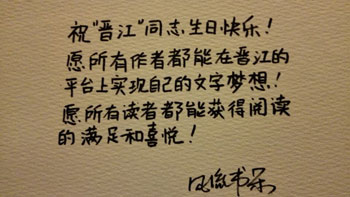 祝“晋江”同志生日快乐！
愿所有作者都能在晋江的
平台上实现自己的文字梦想！
愿所有读者都能获得阅读
的满足和喜悦！